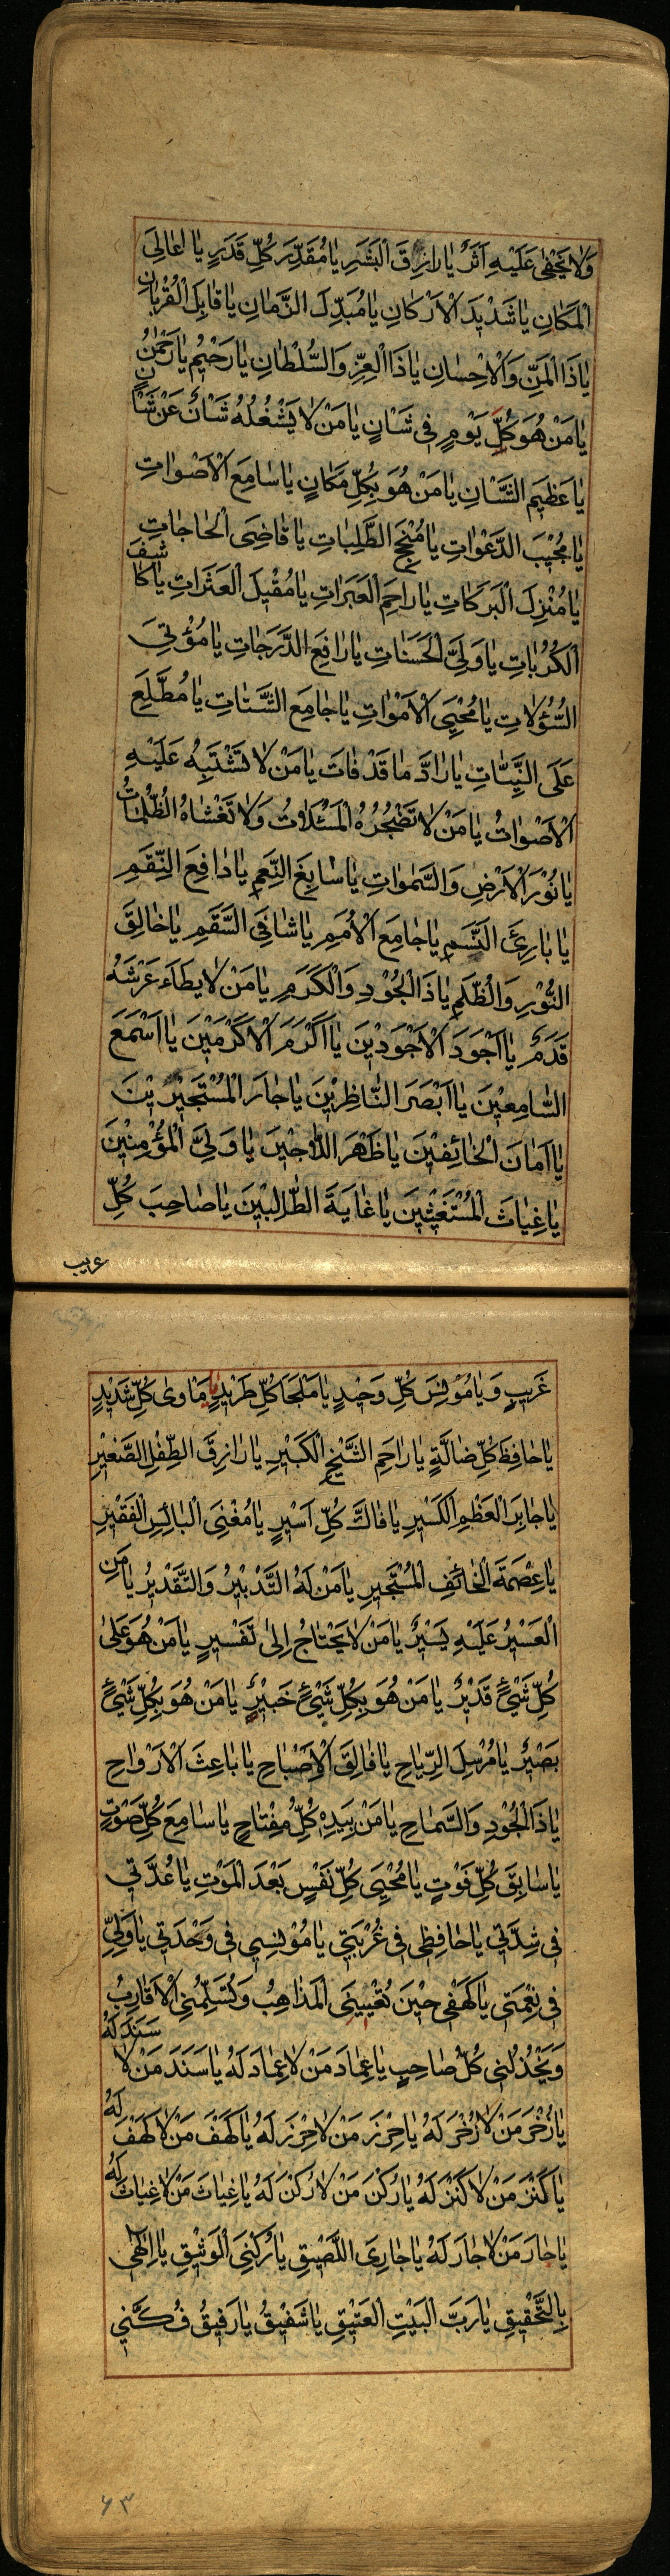 وَلَا يَخْفٰى عَلَيْهِ اَثَرٌ يَا رَازِقَ الْبَشَرِ يَا مُقَدِّرَ كُلِّ قَدَرٍ يَا عَالِيَ
الْمَكَانِ يَا شَدِيْدَ الْاَرْكَانِ يَا مُبَدِّلَ الزَّمَانِ يَا قَابِلَ الْقُرْبَانِ
يَا ذَا الْمَنِّ وَالْاِحْسَانِ يَا ذَا الْعِزِّ وَالسُّلْطَانِ يَا رَحِيْمُ يَا رَحْمٰنُ
يَا مَنْ هُوَ كُلَّ يَوْمٍ فِى شَانٍ يَا مَنْ لَا يَشْغُلُهُ شَانٌ عَنْ شَانٍ
يَا عَظِيْمَ الشَّانِ يَا مَنْ هُوَ بِكُلِّ مَكَانٍ يَا سَامِعَ الْاَصْوَاتِ
يَا مُجِيْبَ الدَّعْوَاتِ يَا مُنْجِحَ الطَّلِبَاتِ يَا قَاضِىَ الْحَاجَاتِ
يَا مُنْزِلَ الْبَرَكَاتِ يَا رَاحِمَ الْعَبَرَاتِ يَا مُقِيْلَ الْعَثَرَاتِ يَا كَاشِفَ
الْكُرُبَاتِ يَا وَلِىَّ الْحَسَنَاتِ يَا رَافِعَ الدَّرَجَاتِ يَا مُؤْتِىَ
السُّؤُلَاتِ يَا مُحْيِىَ الْاَمْوَاتِ يَا جَامِعَ الشَّتَاتِ يَا مُطَّلِعَ
عَلَى النِّيَّاتِ يَا رَادَّ مَا قَدْ فَاتَ يَا مَنْ لَا تَشْتَبِهُ عَلَيْهِ
الْاَصْوَاتُ يَا مَنْ لَا تُضْجِرُهُ الْمَسْئَلَاتُ وَلَا تَغْشَاهُ الظُّلُمَاتُ
يَا نُوْرَ الْاَرْضِ وَالسَّمٰوَاتِ يَا سَابِغَ النِّعَمِ يَا دَافِعَ النِّقَمِ
يَا بَارِئَ النَّسَمِ يَا جَامِعَ الْاُمَمِ يَا شَافِىَ السَّقَمِ يَا خَالِقَ
النُّوْرِ وَالظُّلَمِ يَا ذَا الْجُوْدِ وَالْكَرَمِ يَا مَنْ لَا يَطَاءُ عَرْشَهُ
قَدَمٌ يَا اَجْوَدَ الْاَجْوَدِيْنَ يَا اَكْرَمَ الْاَكْرَمِيْنَ يَا اَسْمَعَ
السَّامِعِيْنَ يَا اَبْصَرَ النَّاظِرِيْنَ يَا جَارَ الْمُسْتَجِيْرِيْنَ
يَا اَمَانَ الْخَائِفِيْنَ يَا ظَهْرَ اللَّاجِيْنَ يَا وَلِىَّ الْمُؤْمِنِيْنَ
يَا غِيَاثَ الْمُسْتَغِيْثِيْنَ يَا غَايَةَ الطَّالِبِيْنَ يَا صَاحِبَ كُلِّ
غريب
غَرِيبٍ وَيَا مُوْنِسَ كُلِّ وَحِيْدٍ يَا مَلْجَأَ كُلِّ طَرِيْدٍ يَا مَاوٰى كُلِّ شَدِيْدٍ
يَا حَافِظَ كُلِّ ضَالَّةٍ يَا رَاحِمَ الشَّيْخِ الْكَبِيْرِ يَا رَازِقَ الطِّفْلِ الصَّغِيْرِ
يَا جَابِرَ الْعَظْمِ الْكَسِيْرِ يَا فَاكَّ كُلِّ اَسِيْرٍ يَا مُغْنِىَ الْبَائِسِ الْفَقِيْرِ
يَا عِصْمَةَ الْخَائِفِ الْمُسْتَجِيْرِ يَا مَنْ لَهُ التَّدْبِيْرُ وَالتَّقْدِيْرُ يَا مَنِ
الْعَسِيْرُ عَلَيْهِ يَسِيْرٌ يَا مَنْ لَا يَحْتَاجُ اِلٰى تَفْسِيْرٍ يَا مَنْ هُوَ عَلٰى
كُلِّ شَىْءٍ قَدِيْرٌ يَا مَنْ هُوَ بِكُلِّ شَىْءٍ خَبِيْرٌ يَا مَنْ هُوَ بِكُلِّ شَىْءٍ
بَصِيْرٌ يَا مُرْسِلَ الرِّيَاحِ يَا فَالِقَ الْاِصْبَاحِ يَا بَاعِثَ الْاَرْوَاحِ
يَا ذَا الْجُوْدِ وَالسَّمَاحِ يَا مَنْ بِيَدِهِ كُلُّ مِفْتَاحٍ يَا سَامِعَ كُلِّ صَوْتٍ
يَا سَابِقَ كُلِّ فَوْتٍ يَا مُحْيِىَ كُلِّ نَفْسٍ بَعْدَ الْمَوْتِ يَا عُدَّتِى
فِى شِدَّتِى يَا حَافِظِى فِى غُرْبَتِى يَا مُوْنِسِى فِى وَحْدَتِى يَا وَلِيِّ
فِى نِعْمَتِى يَا كَهْفِى حِيْنَ تُعْيِيْنِى الْمَذَاهِبُ وَتُسَلِّمُنِى الْاَقَارِبُ
وَيَخْذُلُنِى كُلُّ صَاحِبٍ يَا عِمَادَ مَنْ لَا عِمَادَ لَهُ يَا سَنَدَ مَنْ لَا سَنَدَ لَهُ
يَا ذُخْرَ مَنْ لَا ذُخْرَ لَهُ يَا حِرْزَ مَنْ لَا حِرْزَ لَهُ يَا كَهْفَ مَنْ لَا كَهْفَ لَهُ
يَا كَنْزَ مَنْ لَا كَنْزَ لَهُ يَا رُكْنَ مَنْ لَا رُكْنَ لَهُ يَا غِيَاثَ مَنْ لَا غِيَاثَ لَهُ
يَا جَارَ مَنْ لَا جَارَ لَهُ يَا جَارِىَ اللَّصِيْقِ يَا رُكْنِىَ الْوَثِيْقِ يَا اِلٰهِى
بِالتَّحْقِيْقِ يَا رَبَّ الْبَيْتِ الْعَتِيْقِ يَا شَفِيْقُ يَا رَفِيْقُ فُكَّنِى
۶۳